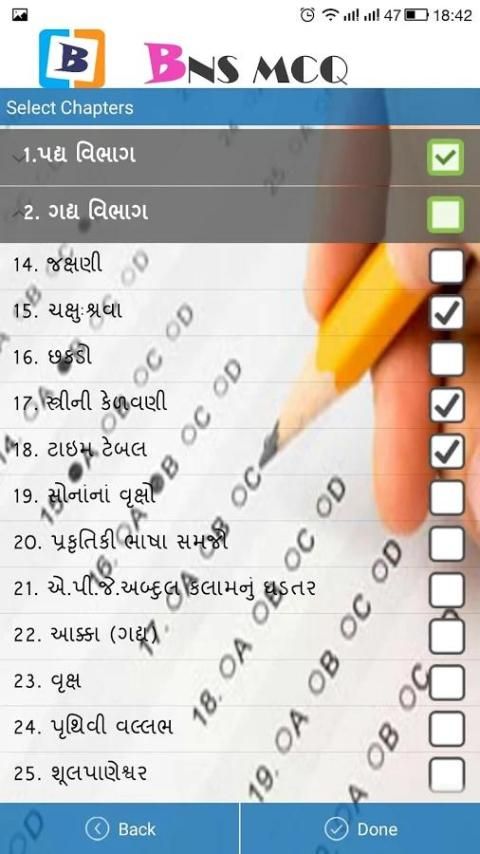 47 18:42
B BNS MCQ
Select Chapters
1.પદ્ય વિભાગ
2. ગદ્ય વિભાગ
14. જક્ષણી
15. ચક્ષુઃશ્રવા
16. છકડો
17. સ્ત્રીની કેળવણી
18. ટાઇમ ટેબલ
19. સોનાનાં વૃક્ષો
20. પ્રકૃતિકી ભાષા સમજો
21. એ.પી.જે.અબ્દુલ કલામનું ઘડતર
22. આક્કા (ગદ્ય)
23. વૃક્ષ
24. પૃથિવી વલ્લભ
25. શૂલપાણેશ્વર
Back Done